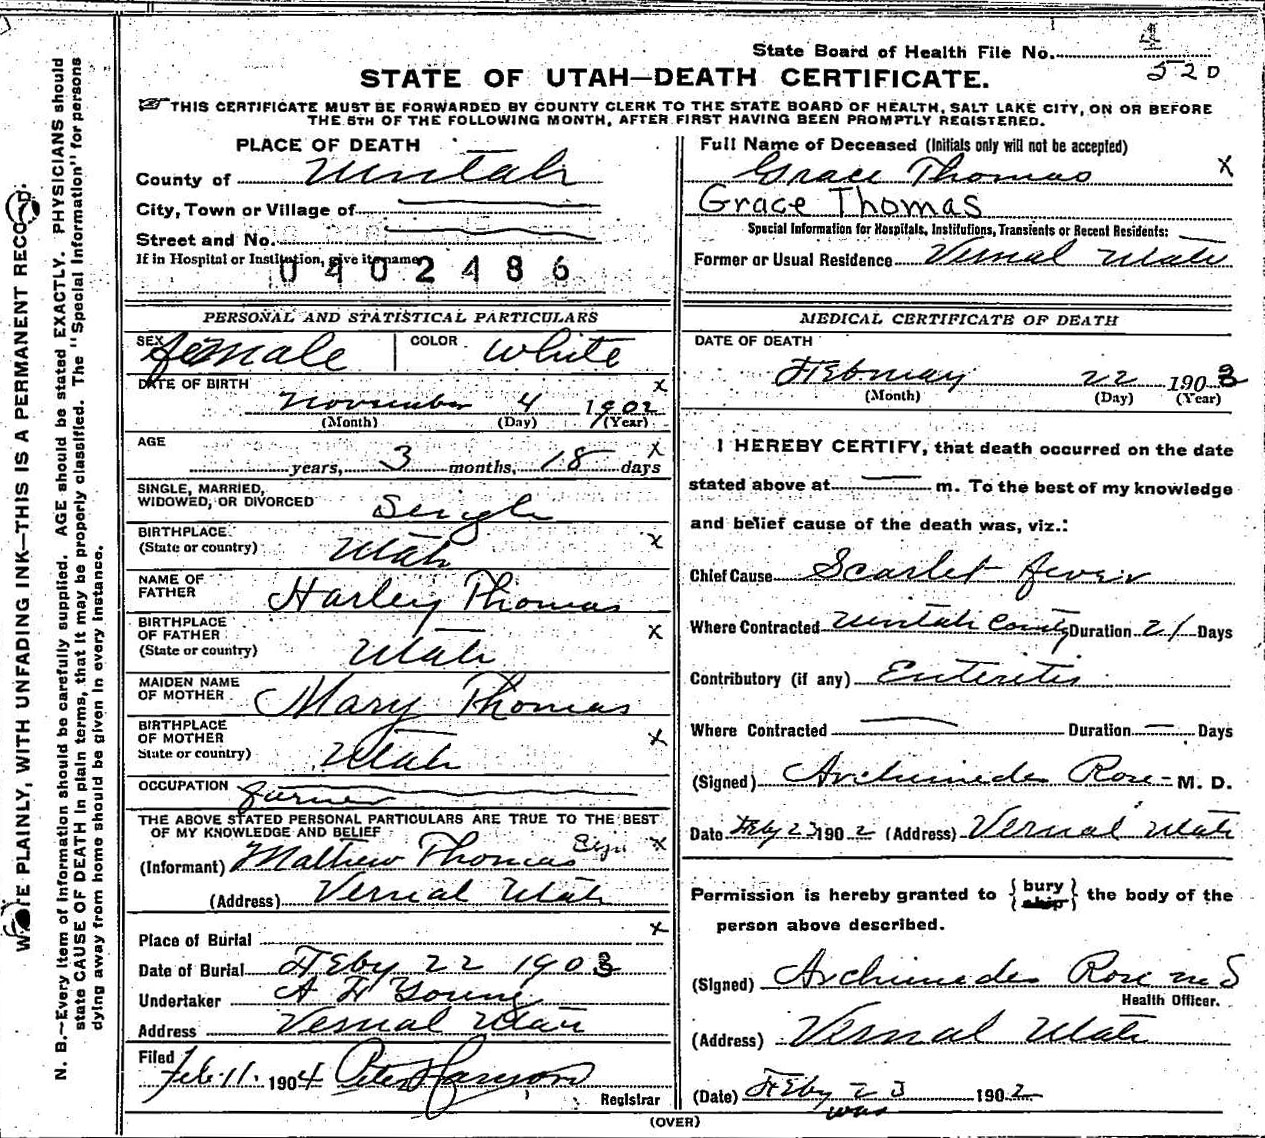 State Board of Health File No. 4
520
STATE OF UTAH—DEATH CERTIFICATE.
THIS CERTIFICATE MUST BE FORWARDED BY COUNTY CLERK TO THE STATE BOARD OF HEALTH, SALT LAKE CITY, ON OR BEFORE
THE 5TH OF THE FOLLOWING MONTH, AFTER FIRST HAVING BEEN PROMPTLY REGISTERED.
PLACE OF DEATH
County of Uintah
City, Town or Village of
Street and No.
If in Hospital or Institution, give its name
0402486
PERSONAL AND STATISTICAL PARTICULARS
SEX female COLOR White
DATE OF BIRTH x
November 4 1902
(Month) (Day) (Year)
AGE x
years, 3 months, 18 days
SINGLE, MARRIED,
WIDOWED, OR DIVORCED Single
BIRTHPLACE x
(State or country) Utah
NAME OF
FATHER Harley Thomas
BIRTHPLACE
OF FATHER x
(State or country) Utah
MAIDEN NAME
OF MOTHER Mary Thomas
BIRTHPLACE
OF MOTHER x
State or country) Utah
OCCUPATION farmer
THE ABOVE STATED PERSONAL PARTICULARS ARE TRUE TO THE BEST
OF MY KNOWLEDGE AND BELIEF
(Informant) Mathew Thomas x
(Address) Vernal Utah
Place of Burial x
Date of Burial Feby 22 1903
Undertaker A H Young
Address Vernal Utah
Filed
Feb. 11. 1904 Peter Hanson
Registrar
Full Name of Deceased (Initials only will not be accepted)
Grace Thomas x
Grace Thomas
Special Information for Hospitals, Institutions, Transients or Recent Residents:
Former or Usual Residence Vernal Utah
MEDICAL CERTIFICATE OF DEATH
DATE OF DEATH
February 22 1903
(Month) (Day) (Year)
I HEREBY CERTIFY, that death occurred on the date
stated above at — m. To the best of my knowledge
and belief cause of the death was, viz.:
Chief Cause Scarlet fever
Where Contracted Uintah County Duration 21 Days
Contributory (if any) Enteritis
Where Contracted — Duration — Days
(Signed) Archimedes Rose M. D.
Date Feby 23 1902 (Address) Vernal Utah
Permission is hereby granted to {bury
ship} the body of the
person above described.
(Signed) Archimedes Rose
Health Officer.
(Address) Vernal Utah
(Date) Feby 23 1902
(OVER)
WRITE PLAINLY, WITH UNFADING INK—THIS IS A PERMANENT RECORD.
N. B.—Every item of information should be carefully supplied. AGE should be stated EXACTLY. PHYSICIANS should
state CAUSE OF DEATH in plain terms, that it may be properly classified. The "Special Information" for persons
dying away from home should be given in every instance.